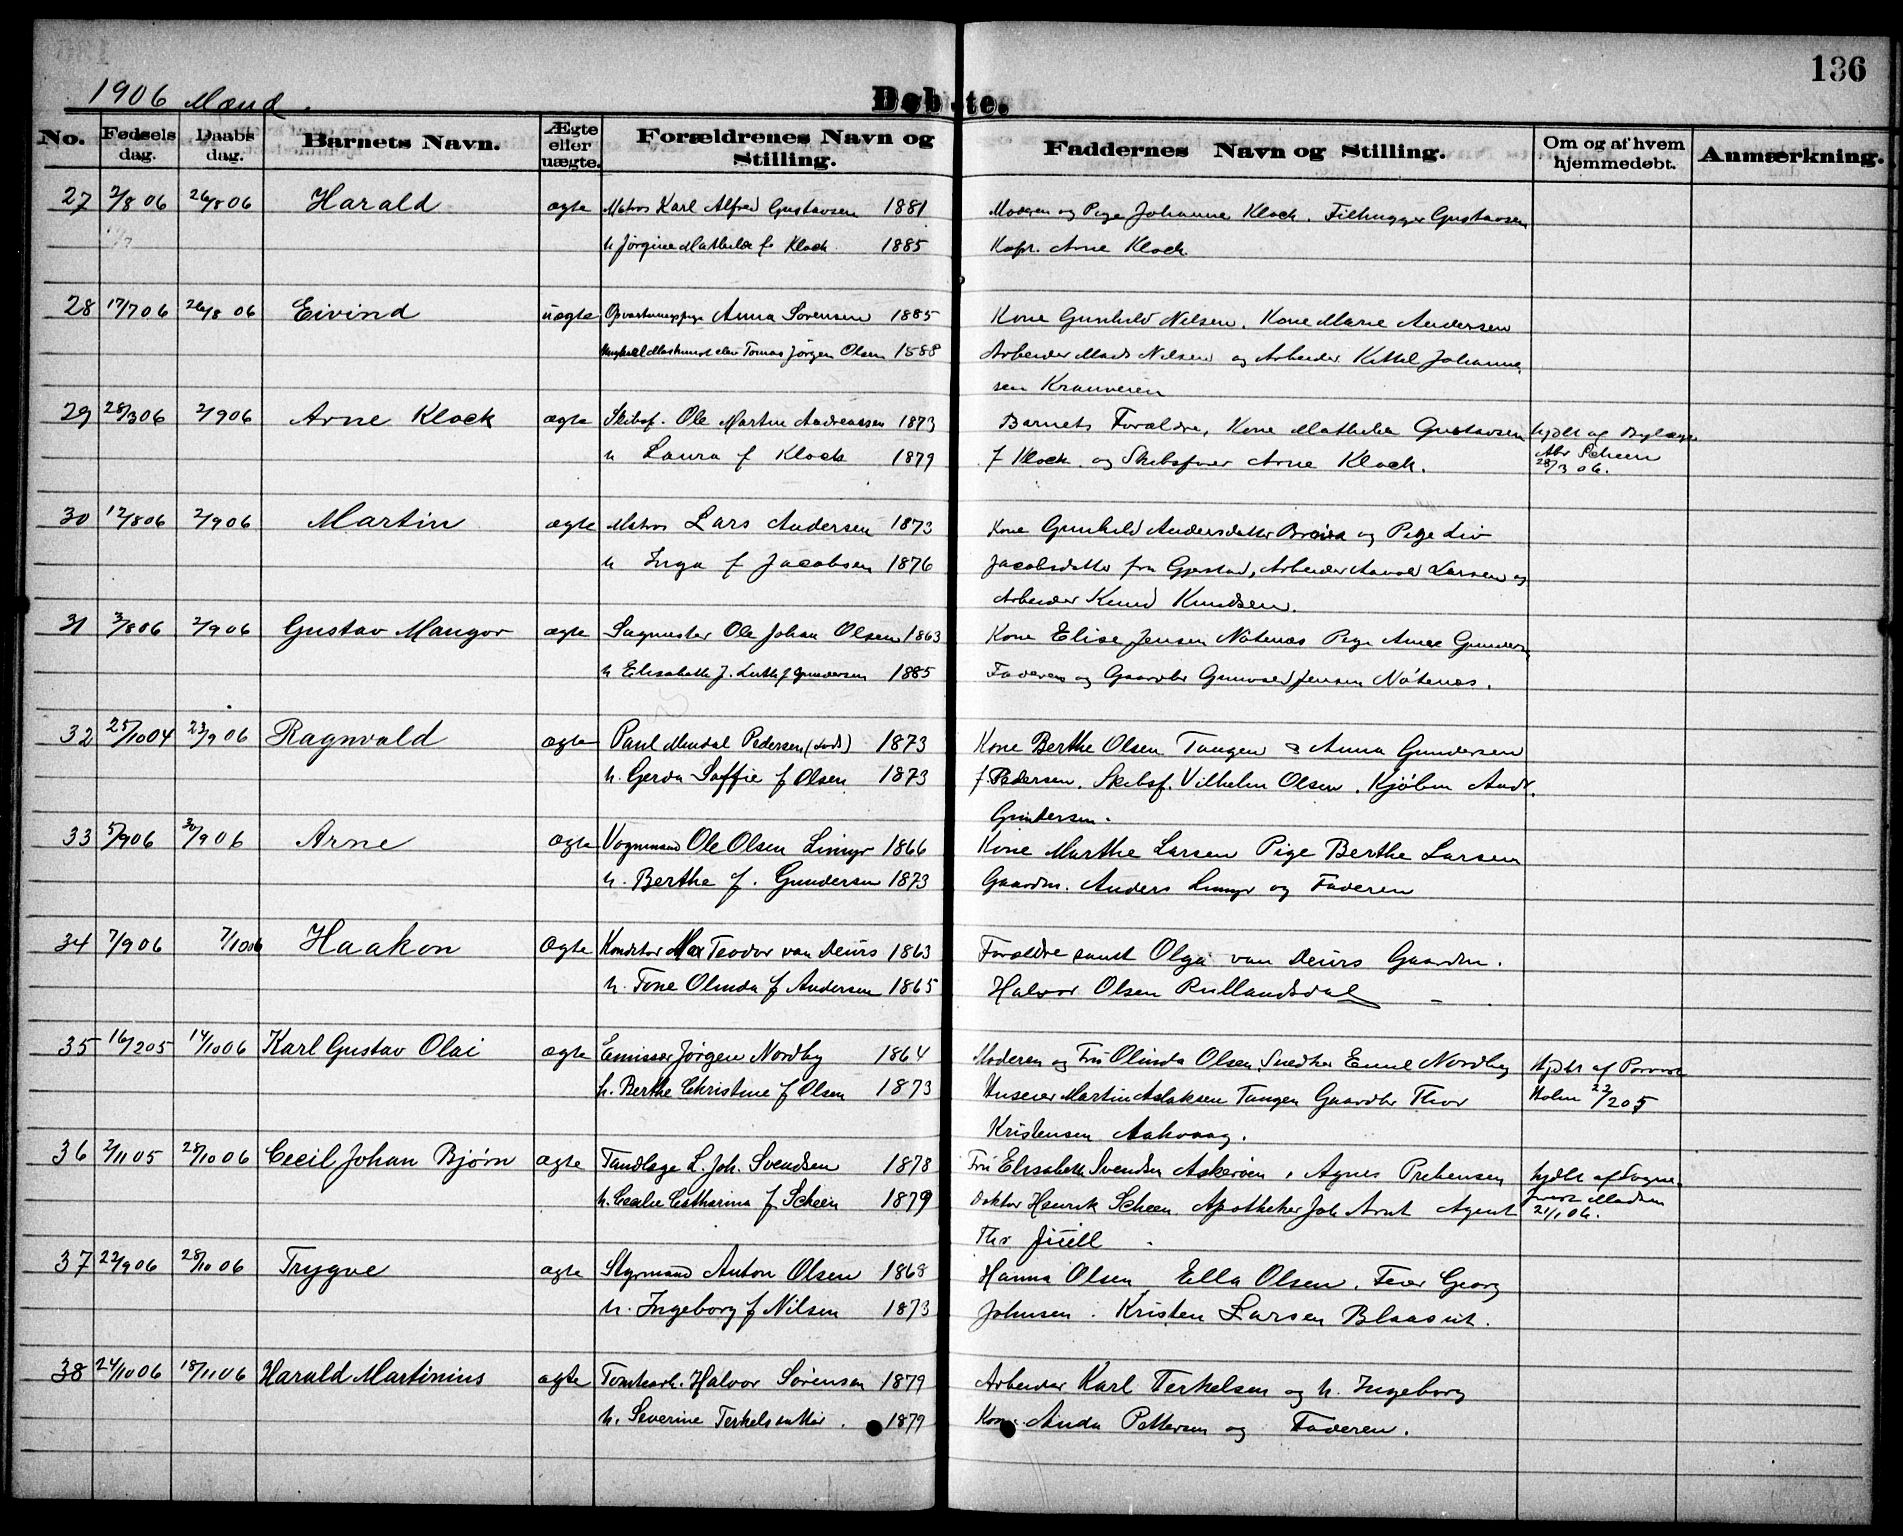 136
1906 Mænd.
Døbte.
No. Fødselsdag. Daabsdag. Barnets Navn. Ægte eller uægte. Forældrenes Navn og Stilling. Faddernes Navn og Stilling. Om og af hvem hjemmedøbt. Anmærkning.
27 2/8 06 26/8 06 Harald ægte Matros Karl Alfred Gustavsen 1881 Moderen og Pige Johanne Klock. Filhugger Gustavsen
h Jørgine Mathilde f Klock 1885 Kapt. Arne Klock.
28 17/7 06 26/8 06 Eivind uægte Opvartningspige Anna Sørensen 1885 Kone Gunhild Nilsen. Kone Marie Andersen
Tomas Jørgen Olsen 1588 Arbeider Mads Nilsen og Arbeider Kittel Johanne
sen Kranveien
29 28/3 06 2/9 06 Arne Klock ægte Skibsf. Ole Martin Andreassen 1873 Barnets Forældre, Kone Mathilde Gustavsen hjdbt af
h Laura f Klock 1879 f Klock. og Skibsfører Arne Klock. Scheen
28/3 06.
30 12/8 06 2/9 06 Martin ægte Matros Lars Andersen 1873 Kone Gunhild Andersdatter og Pige Liv
h Inga f Jacobsen 1876 Jacobsdatter fra Gjestad, Arbeider Larsen og
Arbeider Knud Knudsen.
31 3/8 06 2/9 06 Gustav Mangor ægte Sagmester Ole Johan Olsen 1863 Kone Elise Jensen Nøtenes Pige Gundersen
h Elisabeth J. f Gundersen 1885 Faderen og Gaardbr Jensen Nøtenes.
32 25/10 04 23/9 06 Ragnvald ægte Paul Mendal Pedersen (død) 1873 Kone Berthe Olsen Tangen & Anna Gundersen
h. Gerda Soffie f Olsen 1873 f. Pedersen. Skibsf. Vilhelm Olsen. Kjøbm Andr.
Gundersen.
33 5/9 06 30/9 06 Arne ægte Vognmand Ole Olsen Limyr 1866 Kone Marthe Larsen Pige Berthe Larsen
h. Berthe f. Gundersen 1873 Gaardm. Anders Limyr og Faderen
34 7/9 06 7/10 06 Haakon ægte Konditor Max Teodor van Deurs 1863 Forældre samt Olga van Deurs Gaardm.
h. Tone Olinda f Andersen 1865 Halvor Olsen Rullandsdal
35 16/2 05 14/10 06 Karl Gustav Olai ægte Emissær Jørgen Nordby 1864 Moderen og Fru Olinda Olsen, Snedker Emil Nordby Hjdbt af Provst
h. Berthe Christine f Olsen 1873 Huseier Martin Aslaksen Tangen Gaardbr Thor Holm 22/2 05
Kristensen Aakvaag.
36 2/11 05 28/10 06 Cecil Johan Bjørn ægte Tandlæge L. Joh. Svendsen 1878 Fru Elisabeth Svendsen Askerøen, Agnes Prebensen hjdbt af Sogne
h. Cecilie Catharina f Scheen 1879 Doktor Henrik Scheen. Apotheker Joh Arnt Agent præst Madsen
Thr Juell 21/1 06.
37 22/9 06 28/10 06 Trygve ægte Styrmand Anton Olsen 1868 Hanna Olsen Ella Olsen, Feier Georg
h. Ingeborg f Nilsen 1873 Johnsen. Kristen Larsen Blaasut.
38 24/10 06 18/11 06 Harald Martinius ægte Tomtearb. Halvor Sørensen 1879 Arbeider Karl Terkelsen og h. Ingeborg
h. Severine Terkelsdatter. 1879 Kone Anda Pettersen og Faderen.